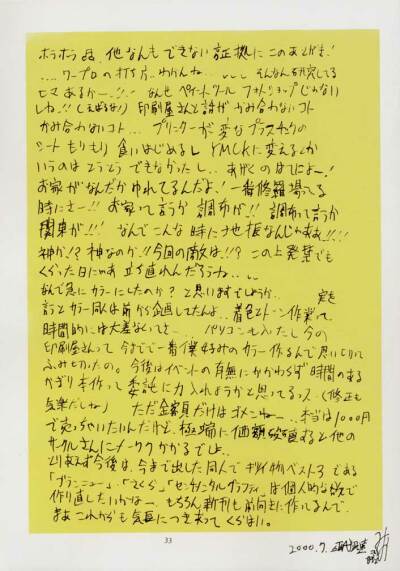 ホラホラ、他なんもできない証拠にこのあとがき!
....ワープロの打ち方わかんね.、、、、そんなん研究してる
ヒマあるかー..!!なんせペイントツールフォトショップじゃない
しね!!(しぇぱるな) 印刷屋さんと話がかみ合わないコト
かみ合わないコト...プリンターが変なプラスチックの
シートもりもり食いはじめるし YMCKに変えるとか
いうのはとうとうできなかったし..あげくのはてにょー!
お家がなんだかゆれてるんだよ!一番修羅場ってる
時にさー!!お家って言うか調布が!!調布って言うか
関東が!!なんでこんな時に地振なんじゃあぁ!!!
神か!?神なのか!!今回の敵は!!?この上発禁でも
くらった日にゃあ立ち直れんだろうね...
なんで急にカラーにしたのか?と思いますでしょうが..実を
言うとカラー同人は前から企画してたんよ..着色とトーン作業って
時間的には大差ないってと...パソコンも入ったし今の
印刷屋さんって今までで一番僕好みのカラー作るんで思い切って
ふみきったの。今後はイベントの有無にかかわらず時間のある
かぎり本作って委託に力入れようかと思ってるっス(修正も
気楽だしね) ただ金額だけはゴメンねー..本当は1000円
で売っちゃいたいんだけど極端に価額破壊すると他の
サークルさんにメーワクかかるでしょ..
とりあえず今後は、今まで出した同人でギガイ的ベスト3である
「ブランニュー」、「さくら」「センチメンタルグラフティ」は個人的な欲で
作り直したいかなー.もちろん新刊も前向きに作ってるんで.
まあこれからも気長につき合って下さい。
33
2000.7.